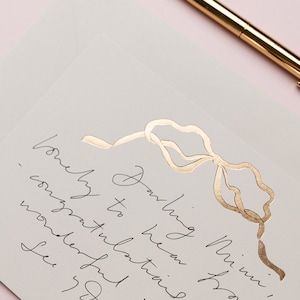 Darling Mimi,
lovely to hear from
congratulations
wonderful
see